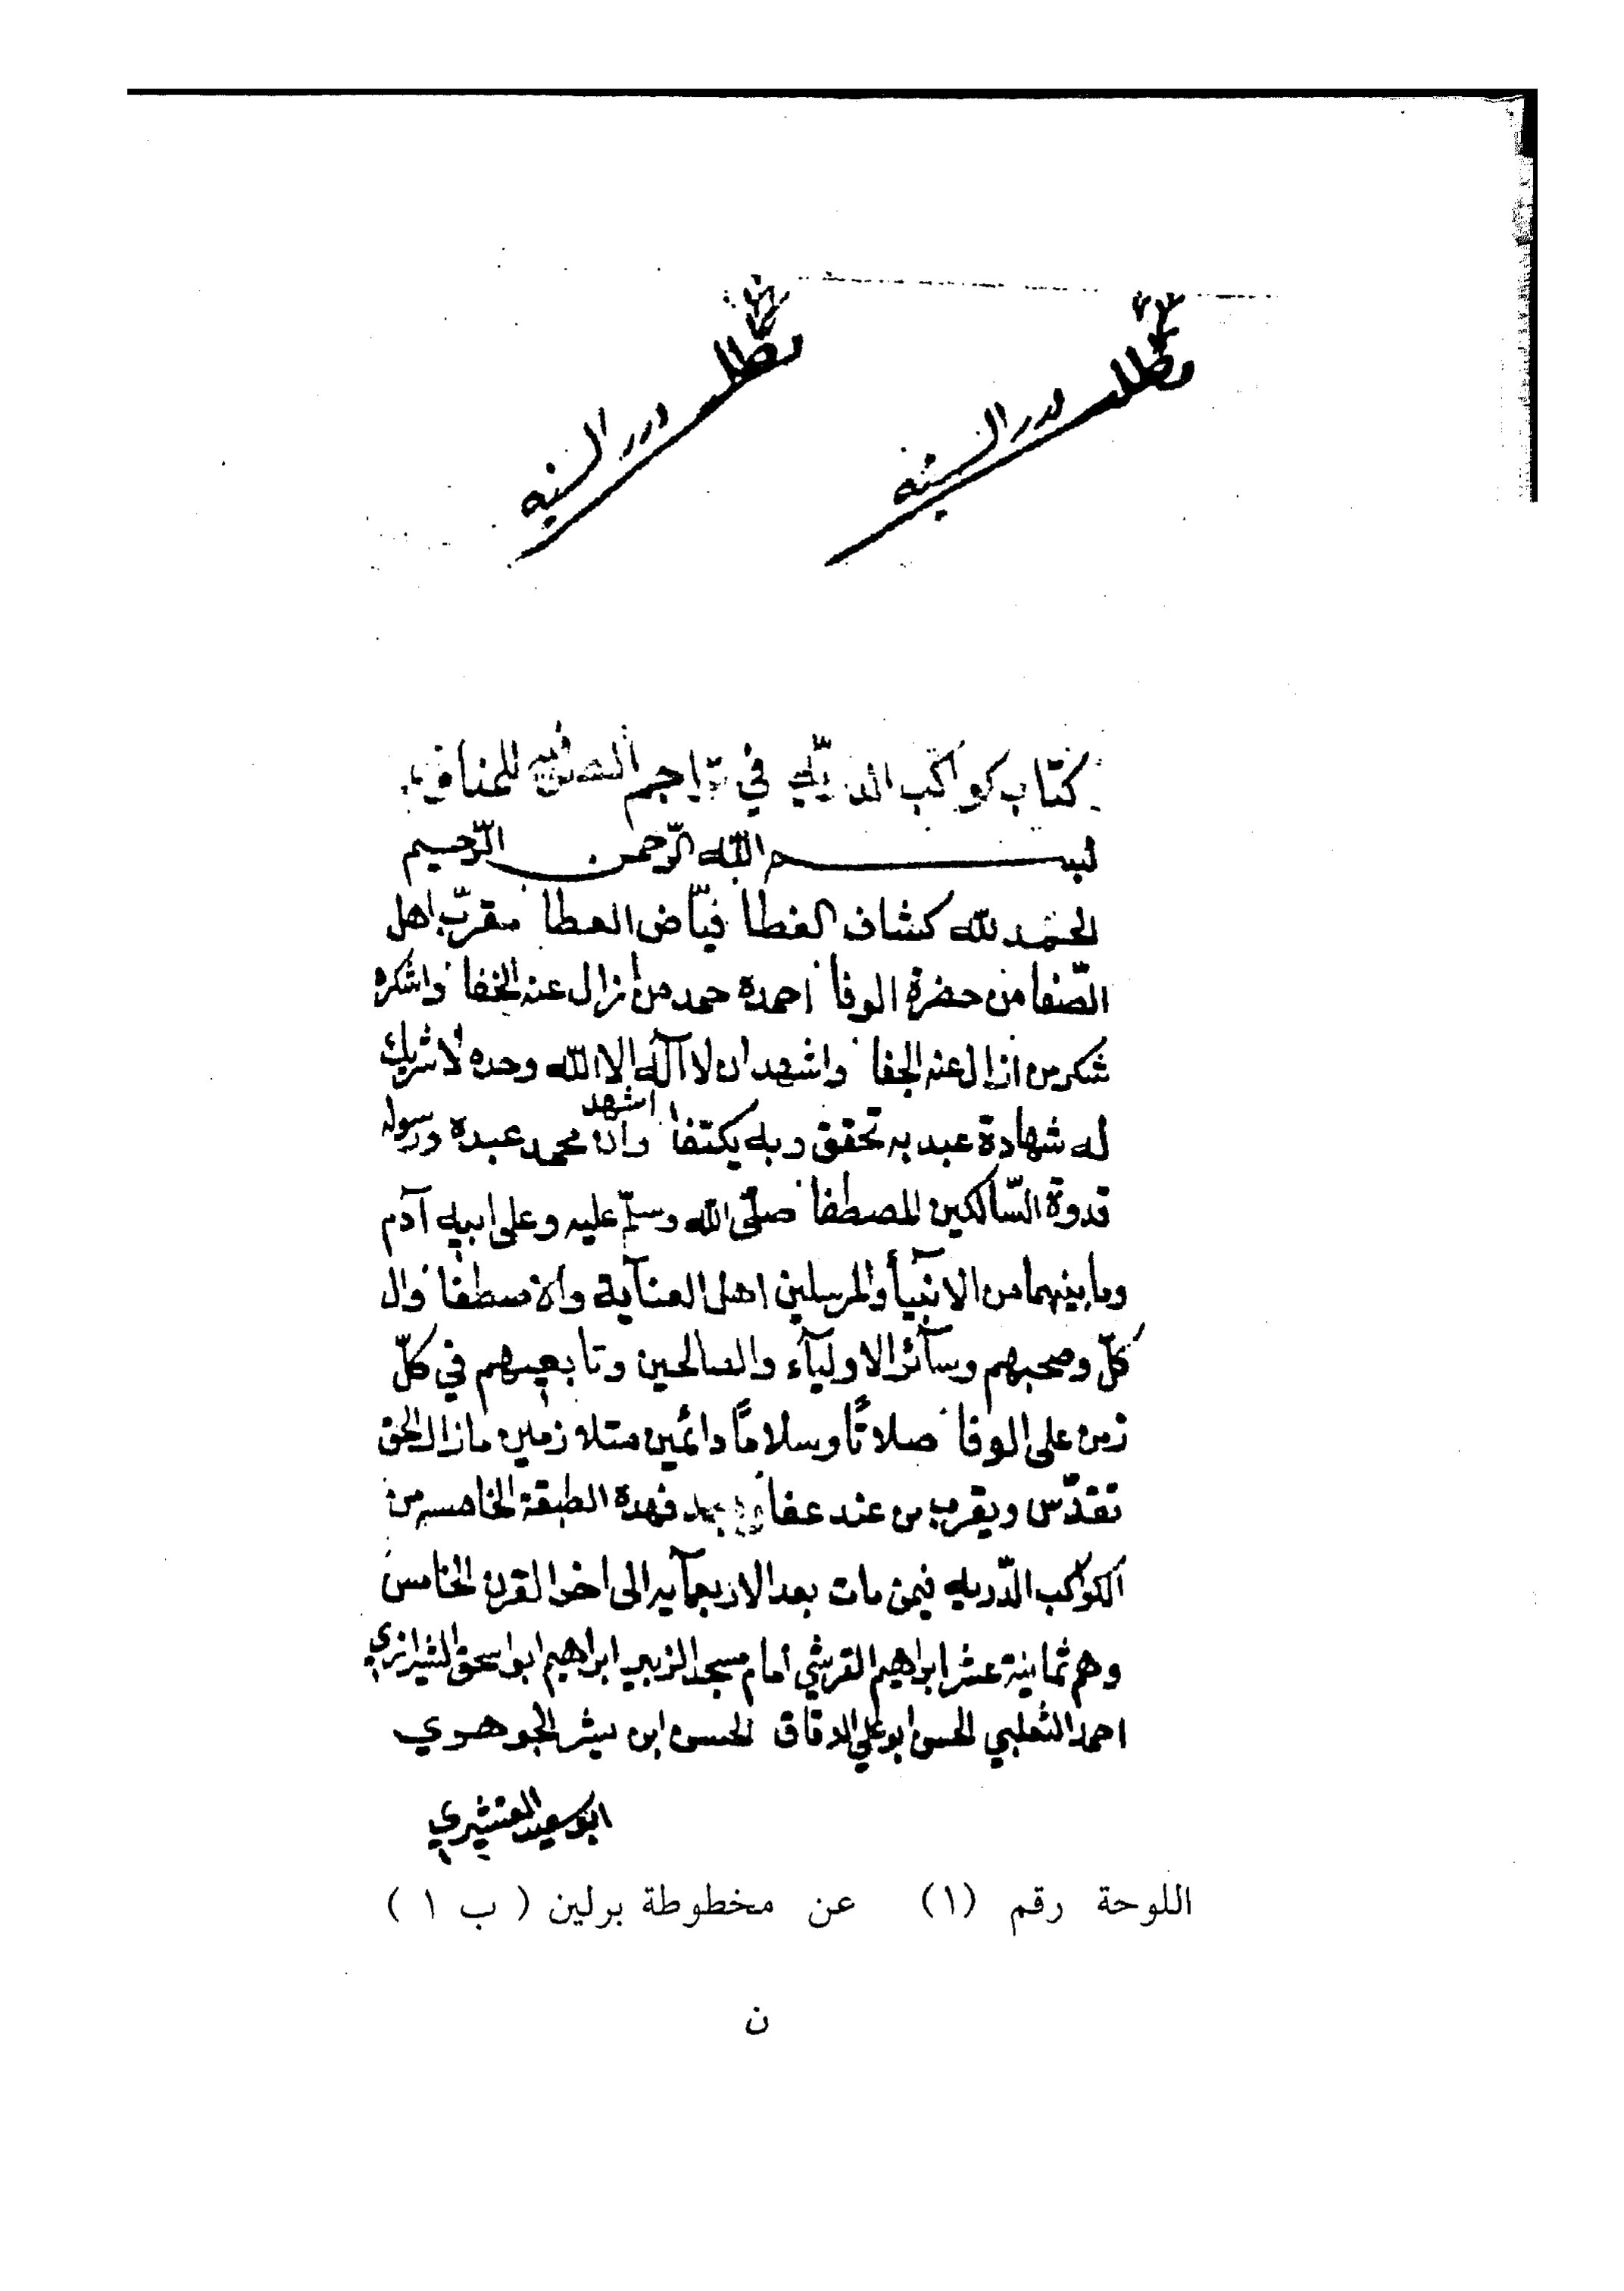 مطلب درر السنيه
مطلب درر السنيه
كتاب كواكب في تراجم للمناوي
بسم الله الرّحمن الرّحيم
الحمد لله كشاف الغطا فيّاض العطا مقرّب اهل
الصّفا من حضرة الوفا احمده حمد من ازال عنه الخفا واشكره
شكر من ازال عنه الجفا واشهد ان لا آله الا الله وحده لا شريك
له شهادة عبد به تحقق وبه يكتفا اشهد وان محمد عبده ورسوله
قدوة السّالكين المصطفا صلّى الله وسلّم عليه وعلى ابيه آدم
وما بينهما من الانبيآ والمرسلين اهل العنآية والاصطفا وال
كلّ وصحبهم وسآئر الاوليآء والصالحين وتابعيهم في كلّ
زمن على الوفا صلاتًا وسلامًا دائمين متلازمين مازال الحق
تقدّس ويقرب من عند عفا وبعد فهذه الطبقة الخامسه من
الكواكب الدّريه فيمن مات بعد الاربعمآيه الى اخر القرن الخامس
وهم ثمانية عشر ابراهيم القرشي امام مسجد الزبير ابراهيم ابو اسحق الشيرازي
احمد الثعلبي الحسن ابو علي الدقاق الحسن ابن بشر الجوهري
ابو سعيد القشيري
اللوحة رقم (١) عن مخطوطة برلين ( ب ١ )
ن